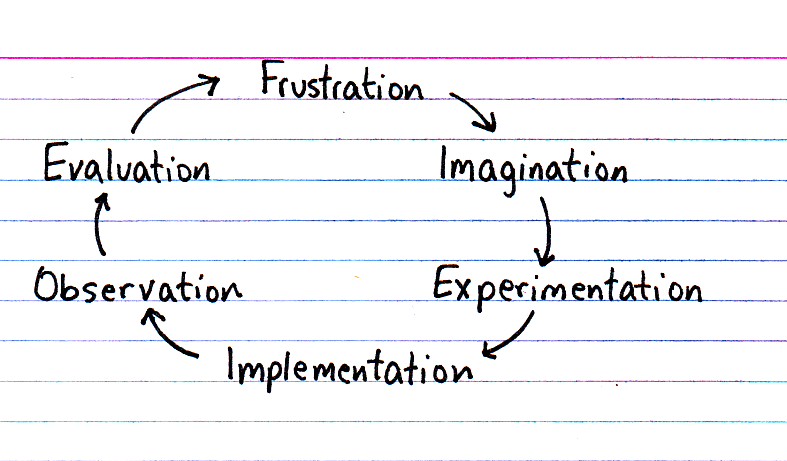 Frustration
Evaluation
Imagination
Observation
Experimentation
Implementation